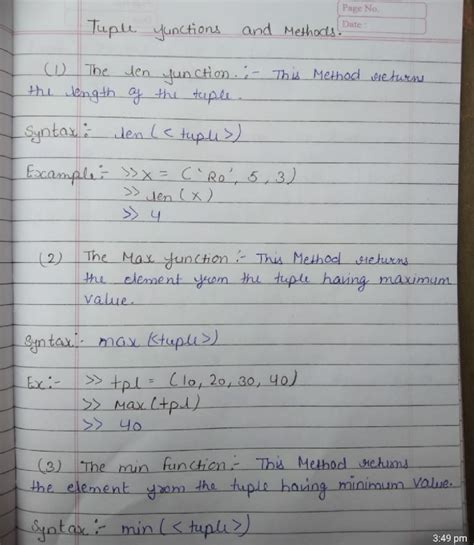 Page No.
Date :
Tuple functions and Methods.
(1) The len function :- This Method returns
the length of the tuple.
Syntax :- len (<tuple>)
Example :- >> x = ('Ro', 5, 3)
>> len (x)
>> 4
(2) The Max function :- This Method returns
the element from the tuple having maximum
value.
Syntax :- max (<tuple>)
Ex :- >> tpl = (10, 20, 30, 40)
>> Max (tpl)
>> 40
(3) The min function :- This Method returns
the element from the tuple having minimum value.
Syntax :- min (<tuple>)
3:49 pm